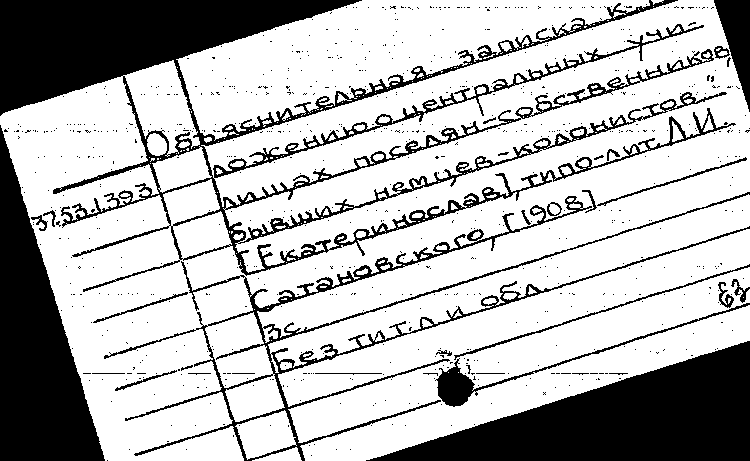 Объяснительная записка к
ложению о центральных учи-
лищах поселян-собственников,
бывших немцев-колонистов."
[Екатеринослав], типо-лит. Л.И.
Сатановского, [1908].
3с.
Без тит.л и обл.
37.53.1.393